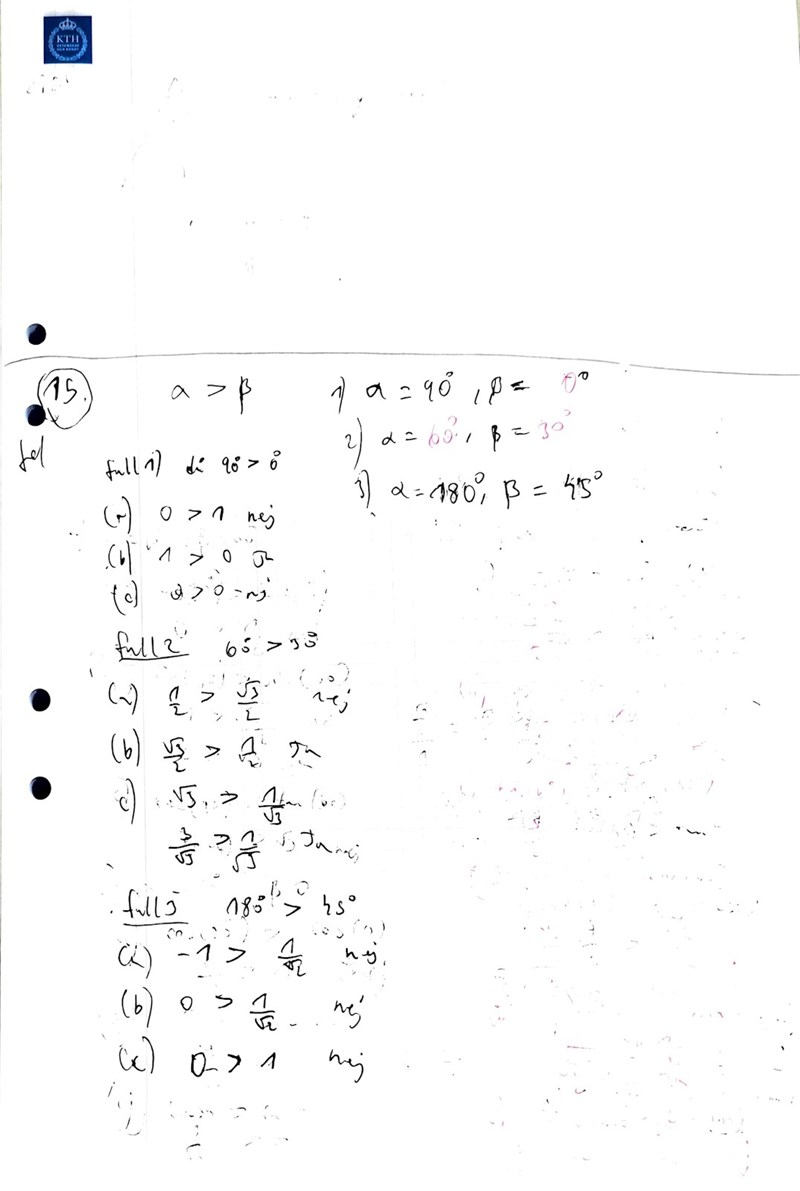 KTH
15. α > β 1) α = 90°, β = 0°
2) α = 60°, β = 30°
3) α = 180°, β = 45°
fall 1) då 90° > 0°
(a) 0 > 1 nej
(b) 1 > 0 Ja
(c) > 0 nej
fall 2 60° > 30°
(a) 1/2 > √3/2 nej
(b) √3/2 > 1/2 Ja
c) √3 > 1/√3
3/√3 > 1/√3 Ja
fall 3 180° > 45°
(a) -1 > 1/√2 nej
(b) 0 > 1/√2 nej
(c) 0 > 1 nej